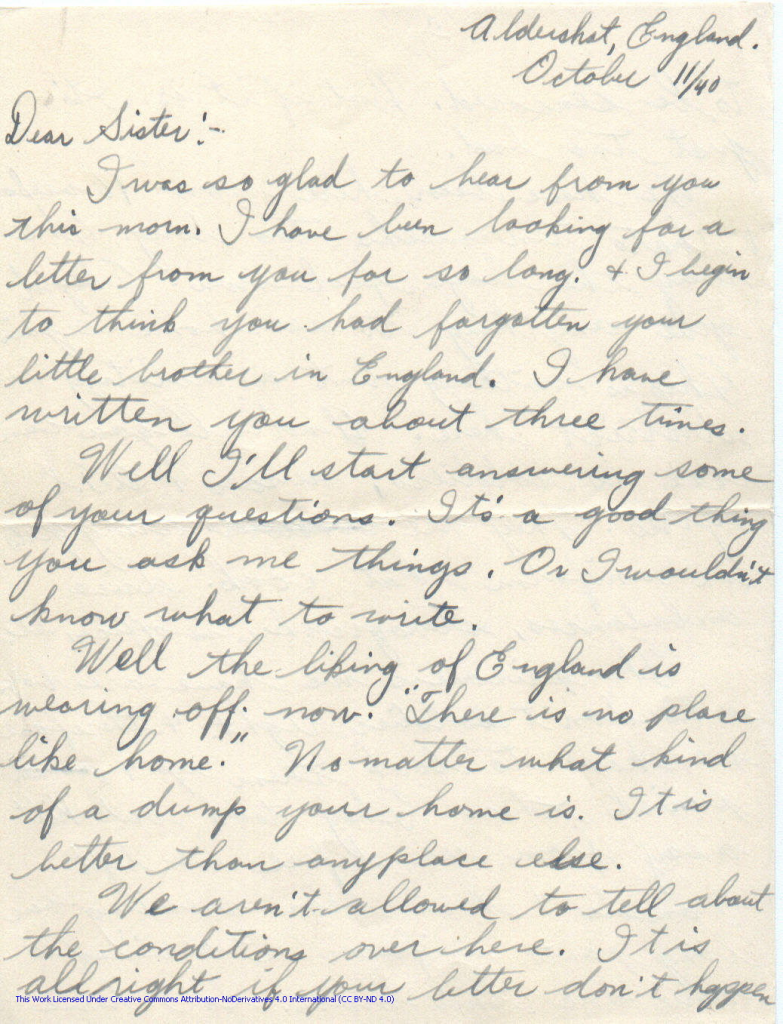 Aldershot, England.
October 11/40
Dear Sister:-
I was so glad to hear from you
this morn. I have been looking for a
letter from you for so long. & I begin
to think you had forgotten your
little brother in England. I have
written you about three times.
Well I'll start answering some
of your questions. It's a good thing
you ask me things. Or I wouldn't
know what to write.
Well the liking of England is
wearing off now. "There is no place
like home." No matter what kind
of a dump your home is. It is
better than anyplace else.
We aren't allowed to tell about
the conditions over here. It is
all right if your letter don't happen
This Work Licensed Under Creative Commons Attribution-NoDerivatives 4.0 International (CC BY-ND 4.0)